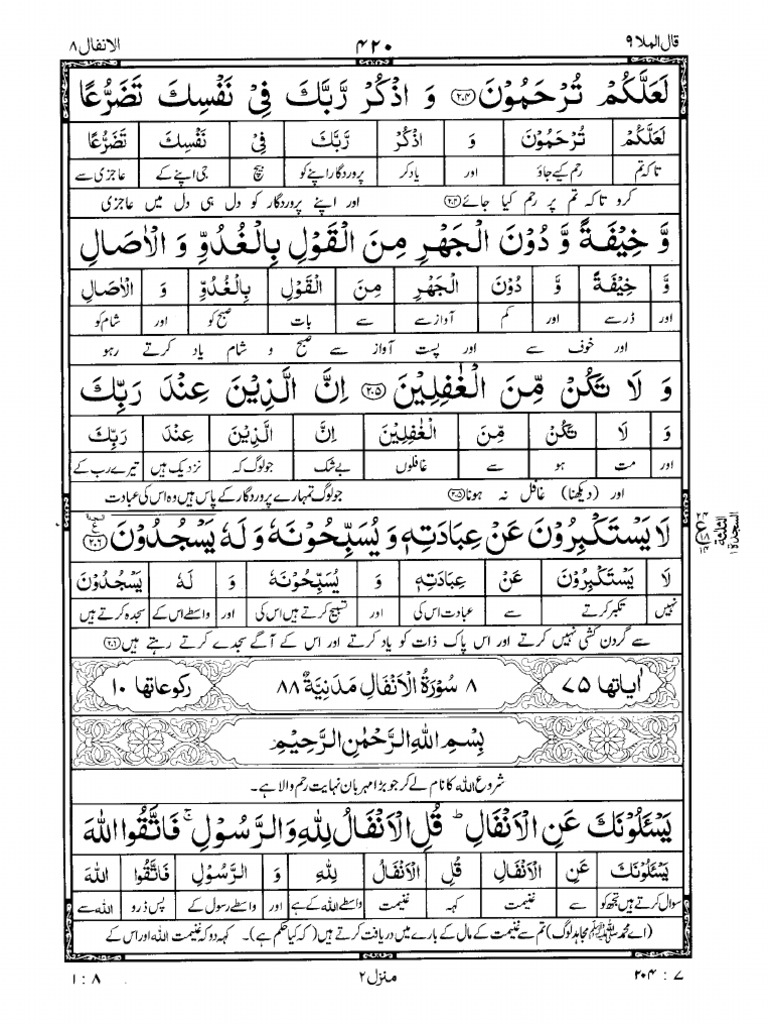 قال الملا ۹ ۴۲۰ الانفال ۸
لَعَلَّكُمْ تُرْحَمُوْنَ ﴿۲۰۴﴾ وَ اذْكُرْ رَّبَّكَ فِیْ نَفْسِكَ تَضَرُّعًا
لَعَلَّكُمْ تُرْحَمُوْنَ وَ اذْكُرْ رَّبَّكَ فِیْ نَفْسِكَ تَضَرُّعًا
تاکہ تم رحم کیے جاؤ اور یاد کر پروردگار اپنے کو بیچ جی اپنے کے عاجزی سے
کرو تاکہ تم پر رحم کیا جائے ﴿۲۰۴﴾ اور اپنے پروردگار کو دل ہی دل میں عاجزی
وَّ خِیْفَةً وَّ دُوْنَ الْجَهْرِ مِنَ الْقَوْلِ بِالْغُدُوِّ وَ الْاٰصَالِ
وَّ خِیْفَةً وَّ دُوْنَ الْجَهْرِ مِنَ الْقَوْلِ بِالْغُدُوِّ وَ الْاٰصَالِ
اور ڈر سے اور کم آواز سے سے بات صبح کو اور شام کو
اور خوف سے اور پست آواز سے صبح و شام یاد کرتے رہو
وَ لَا تَكُنْ مِّنَ الْغٰفِلِیْنَ ﴿۲۰۵﴾ اِنَّ الَّذِیْنَ عِنْدَ رَبِّكَ
وَ لَا تَكُنْ مِّنَ الْغٰفِلِیْنَ اِنَّ الَّذِیْنَ عِنْدَ رَبِّكَ
اور مت ہو سے غافلوں بے شک جو لوگ کہ نزدیک ہیں تیرے رب کے
اور (دیکھنا) غافل نہ ہونا ﴿۲۰۵﴾ جو لوگ تمہارے پروردگار کے پاس ہیں وہ اس کی عبادت
لَا یَسْتَكْبِرُوْنَ عَنْ عِبَادَتِهٖ وَ یُسَبِّحُوْنَهٗ وَ لَهٗ یَسْجُدُوْنَ ﴿۲۰۶﴾
السجدة ۱
لَا یَسْتَكْبِرُوْنَ عَنْ عِبَادَتِهٖ وَ یُسَبِّحُوْنَهٗ وَ لَهٗ یَسْجُدُوْنَ
نہیں تکبر کرتے سے عبادت اس کی اور تسبیح کرتے ہیں اس کی اور واسطے اس کے سجدہ کرتے ہیں
سے گردن کشی نہیں کرتے اور اس پاک ذات کو یاد کرتے اور اس کے آگے سجدے کرتے رہتے ہیں ﴿۲۰۶﴾
اٰیاتها ۷۵ ۸ سُوْرَةُ الْاَنْفَالِ مَدَنِیَّةٌ ۸۸ رکوعاتها ۱۰
بِسْمِ اللهِ الرَّحْمٰنِ الرَّحِیْمِ
شروع اللہ کا نام لے کر جو بڑا مہربان نہایت رحم والا ہے۔
یَسْـَٔلُوْنَكَ عَنِ الْاَنْفَالِ ؕ قُلِ الْاَنْفَالُ لِلّٰهِ وَ الرَّسُوْلِ ۚ فَاتَّقُوا اللهَ
یَسْـَٔلُوْنَكَ عَنِ الْاَنْفَالِ قُلِ الْاَنْفَالُ لِلّٰهِ وَ الرَّسُوْلِ فَاتَّقُوا اللهَ
سوال کرتے ہیں تجھ کو سے غنیمت کہہ غنیمت واسطے اللہ کے ہے اور واسطے رسول کے پس ڈرو اللہ سے
(اے محمد ﷺ مجاہد لوگ) تم سے غنیمت کے مال کے بارے میں دریافت کرتے ہیں (کہ کیا حکم ہے)۔ کہہ دو کہ غنیمت اللہ اور اس کے
۷ : ۲۰۴ منزل ۲ ۸ : ۱